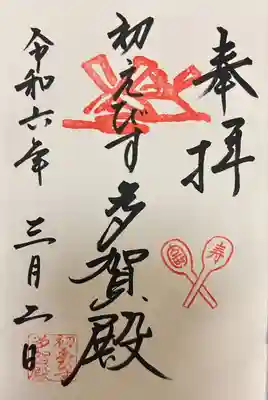 奉拝
初えびす
多賀殿
令和六年
三月二日
寿